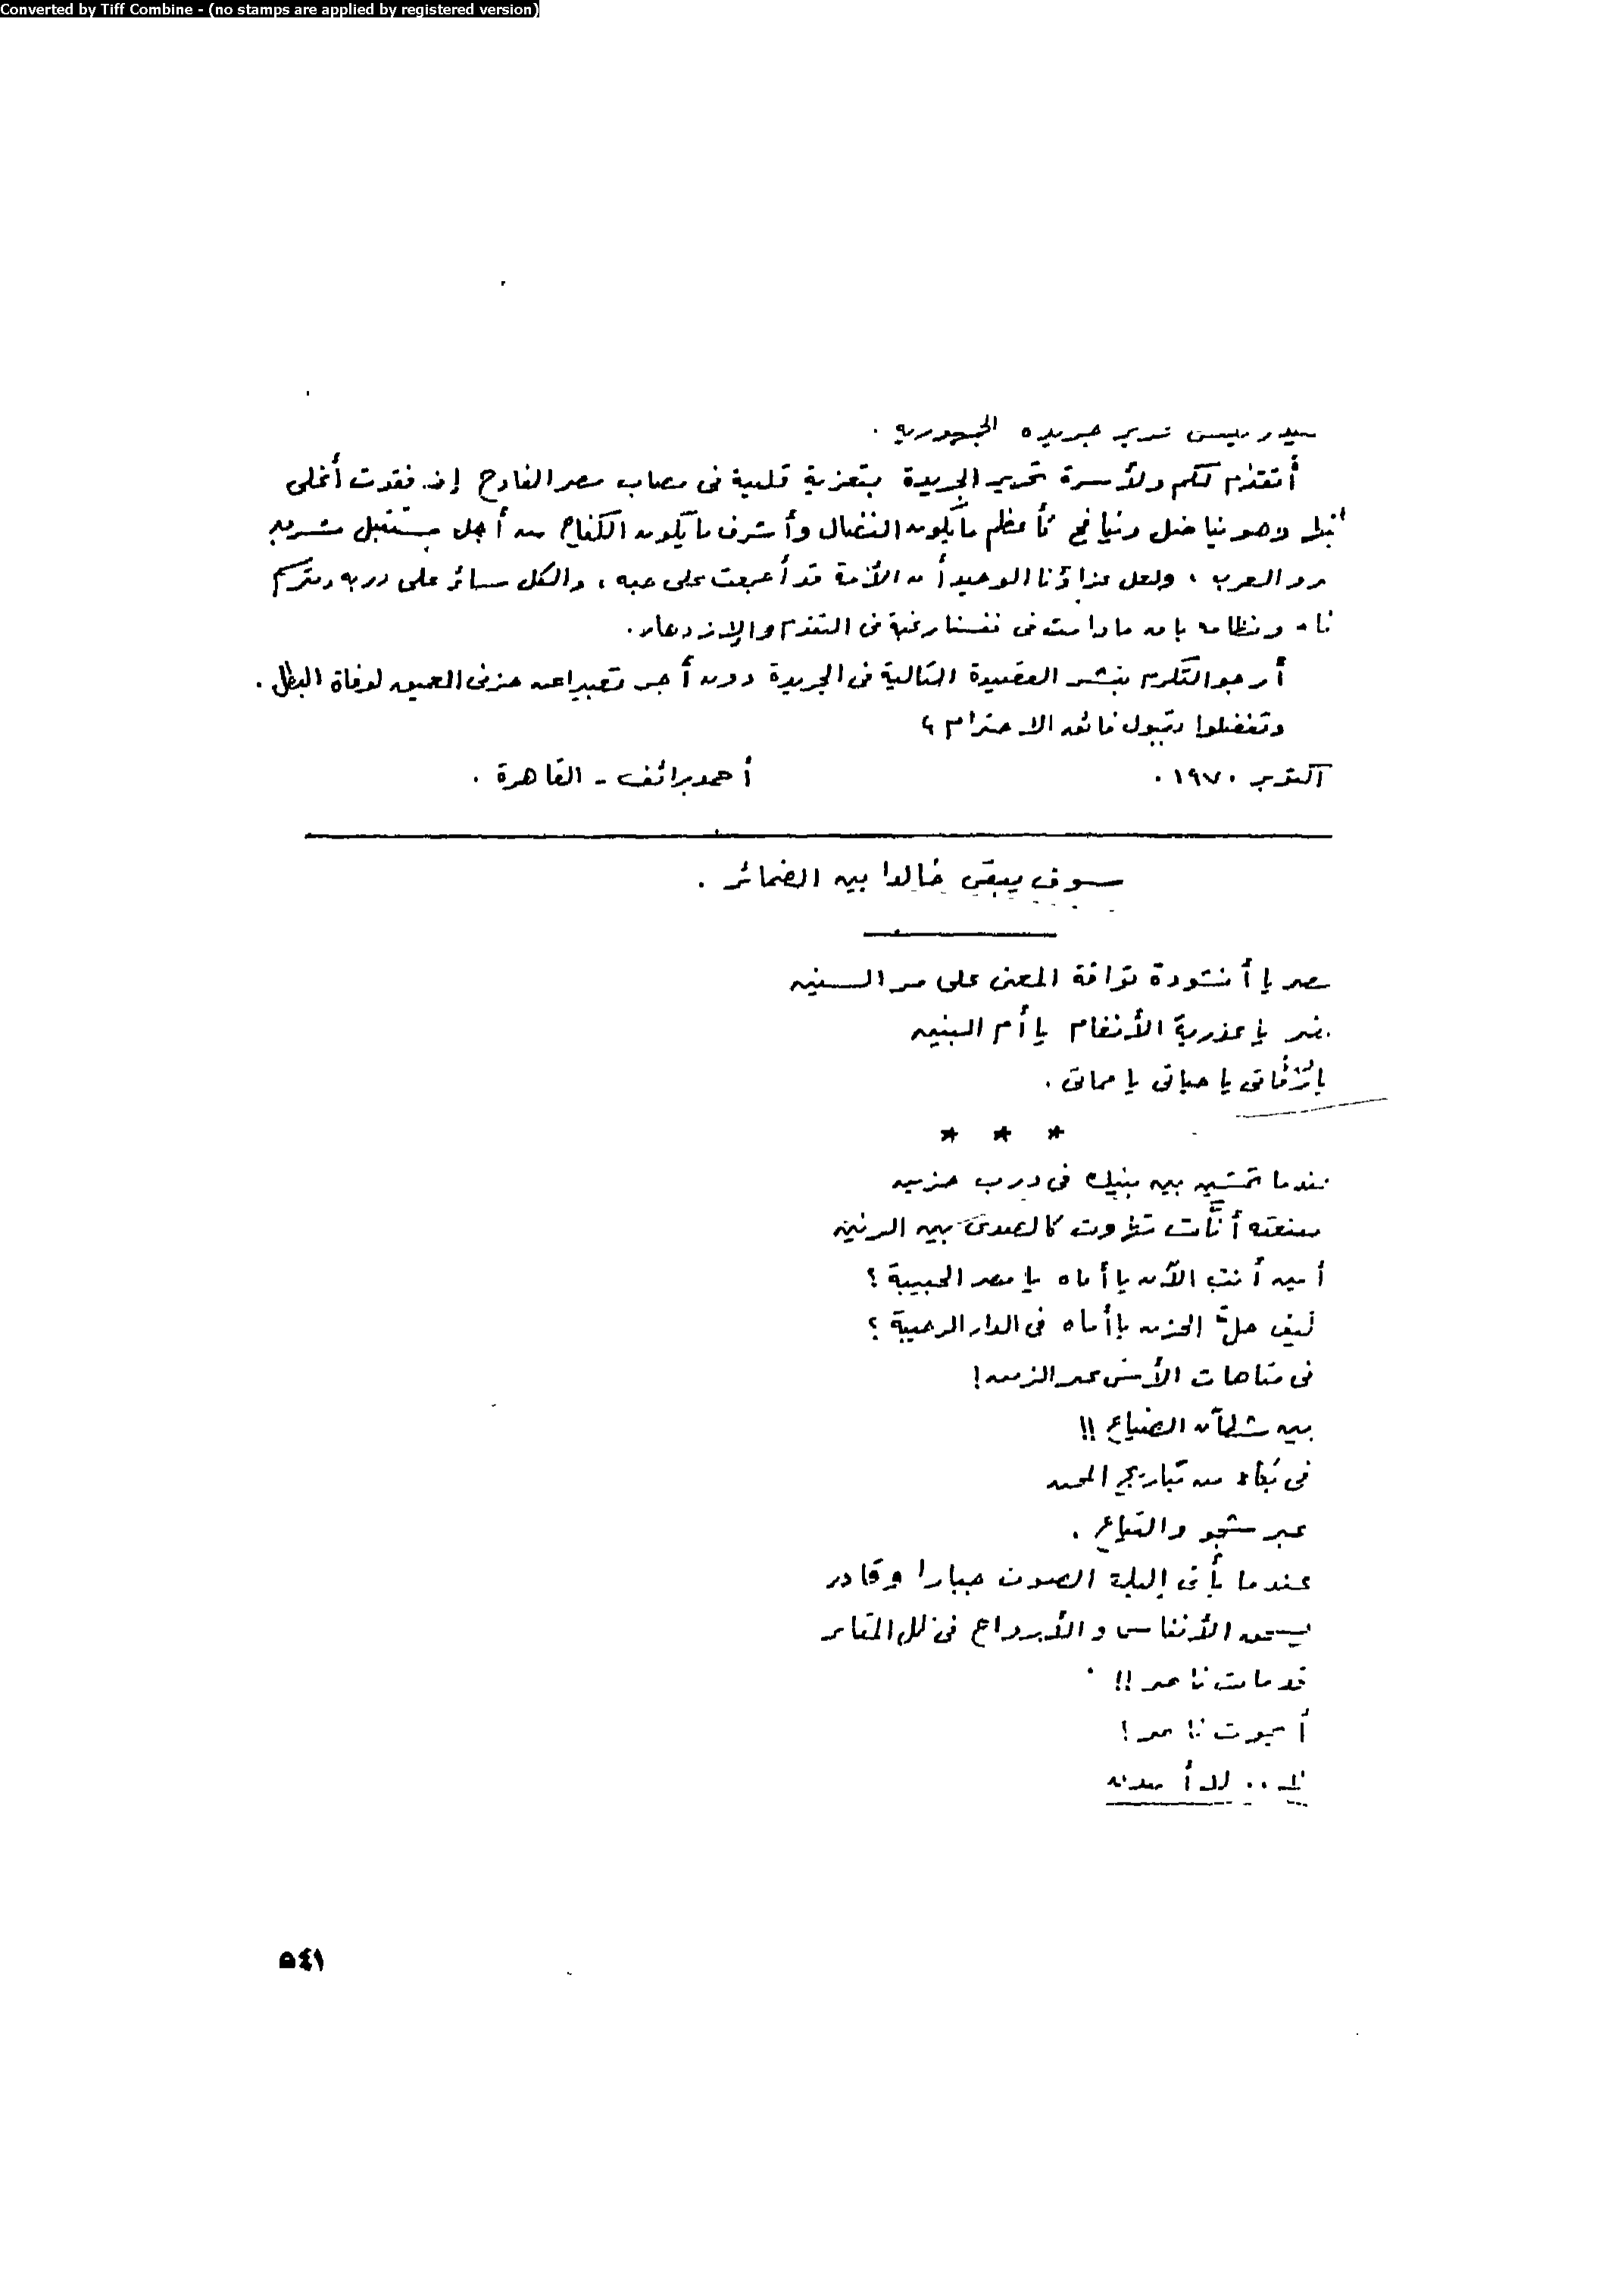 Converted by Tiff Combine - (no stamps are applied by registered version)
سيد رئيس تحرير جريدة الجمهورية .
أتقدم لكم ولأسرة تحرير الجريدة بتعزية قلبية فى مصاب مصر الفادح إذ فقدت أغلى
وهو يناضل وينافح كأعظم ما يكون النضال وأشرف ما يكون الكفاح من أجل مستقبل مشرق
العرب ، ولعل عزاؤنا الوحيد أن الأمة قد أجمعت على حبه ، والكل سائر على دربه
ونظامه بأنه ما دامت فى نفسنا رغبة فى التقدم والإزدهار .
أرجو التكرم بنشر القصيدة التالية فى الجريدة دون أجر تعبيرا عن حزنى العميق لوفاة البطل .
وتفضلوا بقبول فائق الاحترام ،
أكتوبر ١٩٧٠ . أحمد رائف - القاهرة .
سوف يبقى خالدا بين الضمائر .
صر يا أنشودة تواقة المعنى على مر السنين
يا عذرية الأنغام يا أم البنين
يا رفاتى يا حياتى يا مماتى .
* * *
ندما تمشين بين بنيك فى درب حزين
أنَّات كالصدى بين الرنين
أين أنت الآن يا أماه يا مصر الحبيبة ؟
كيف حلّ الحزن يا أماه فى الدار الرحيبة ؟
فى متاهات الأسى عبر الزمن !
بين شطآن الضياع !!
فى بكاء من تباريح المحن
عبر شجو والتياع .
عندما يأتى إليك الصوت جبارا وقادر
يسحق الأنفاس والأرواح فى ظل المقابر
قد مات ناصر !!
أيموت ناصر ؟
لا .. لا أصدق
٥٤١